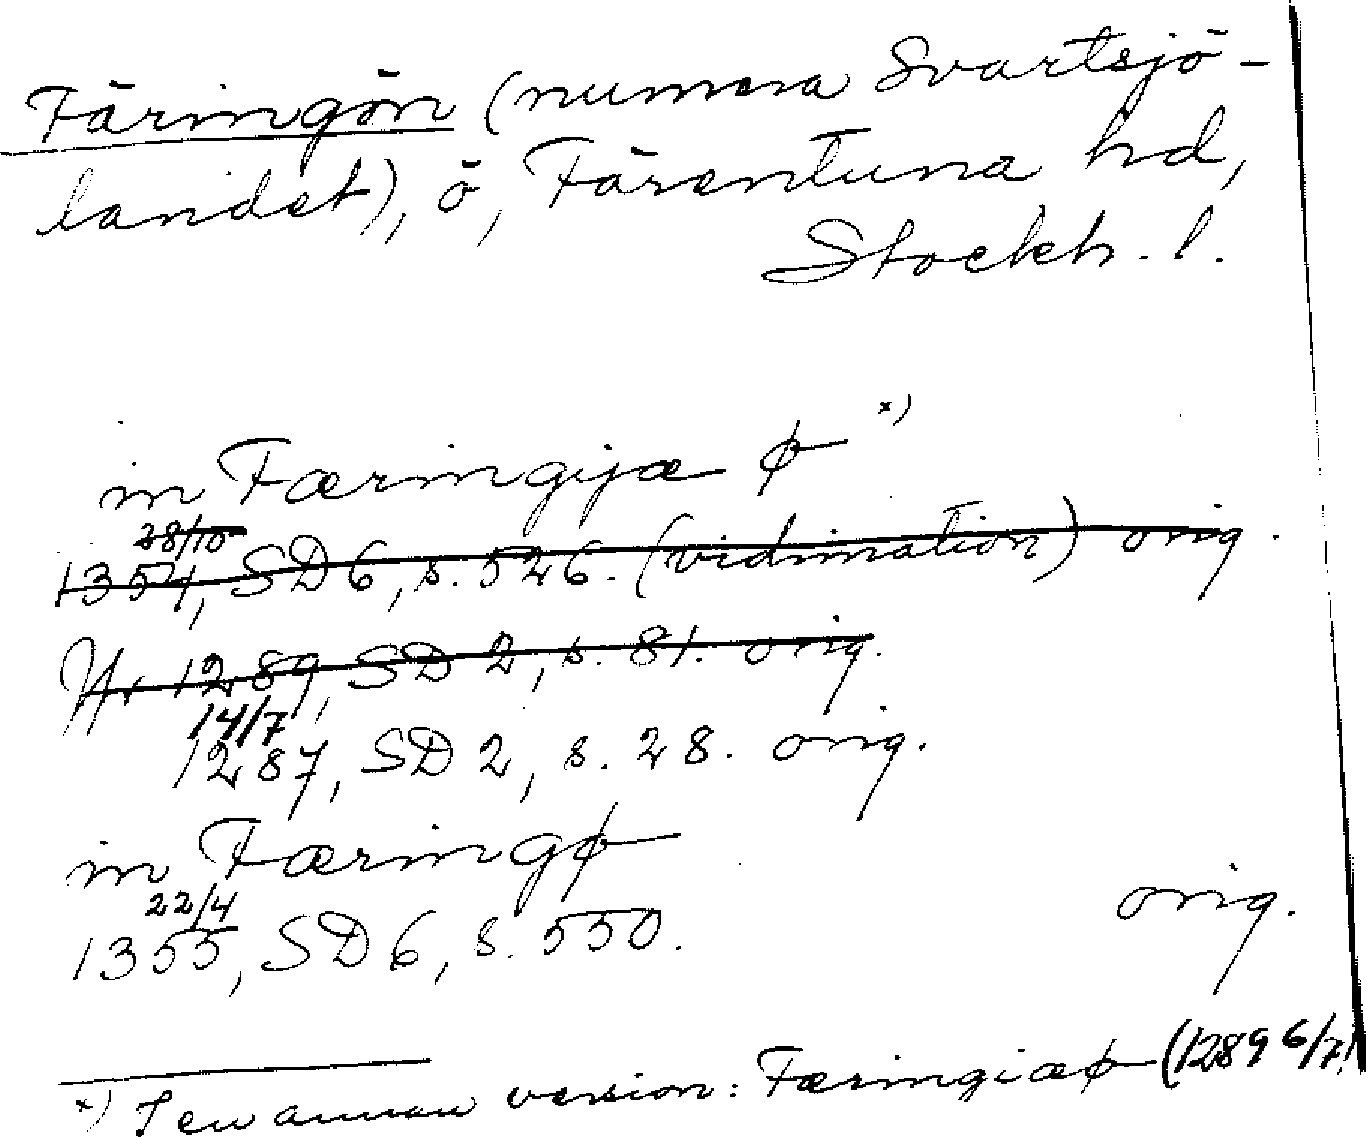 Färingön (numera Svartsjö-
landet), ö, Färentuna hd,
Stockh. l.
in Færingijæ ø x)
28/10
1354, SD 6, s. 526. (vidimation) orig.
1289, SD 2, s. 81. orig.
14/7
1287, SD 2, s. 28. orig.
in Færingø
22/4
1355, SD 6, s. 550. orig.
x) I en annan version: Færingiæø (1289 6/7)